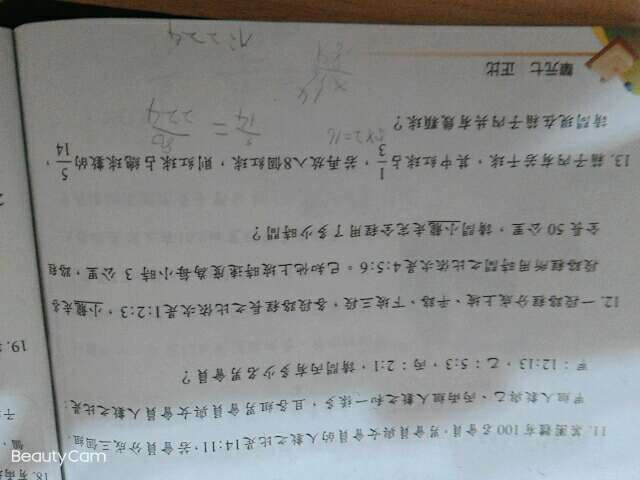 18. 有兩
11. 某團體有100名會員，男會員與女會員的人數之比是14：11，若會員分成三個組，
甲組人數與乙、丙兩組人數之和一樣多，且各組男會員與女會員人數之比是：
甲：12:13，乙：5:3，丙：2:1，請問丙有多少名男會員？
19.
12. 一段路程分成上坡、平路、下坡三段，各段路程長之比依次是1:2:3，小龍走各
段路程所用時間之比依次是4:5:6。已知他上坡時速度為每小時 3 公里，路程
全長 50 公里，請問小龍走完全程用了多少時間？
13. 箱子內有若干球，其中紅球占1/3，若再放入8個紅球，則紅球占總球數的5/14，
請問現在箱子內共有幾顆球？
8×2=16
14 = 80/224
單元七 正比
BeautyCam